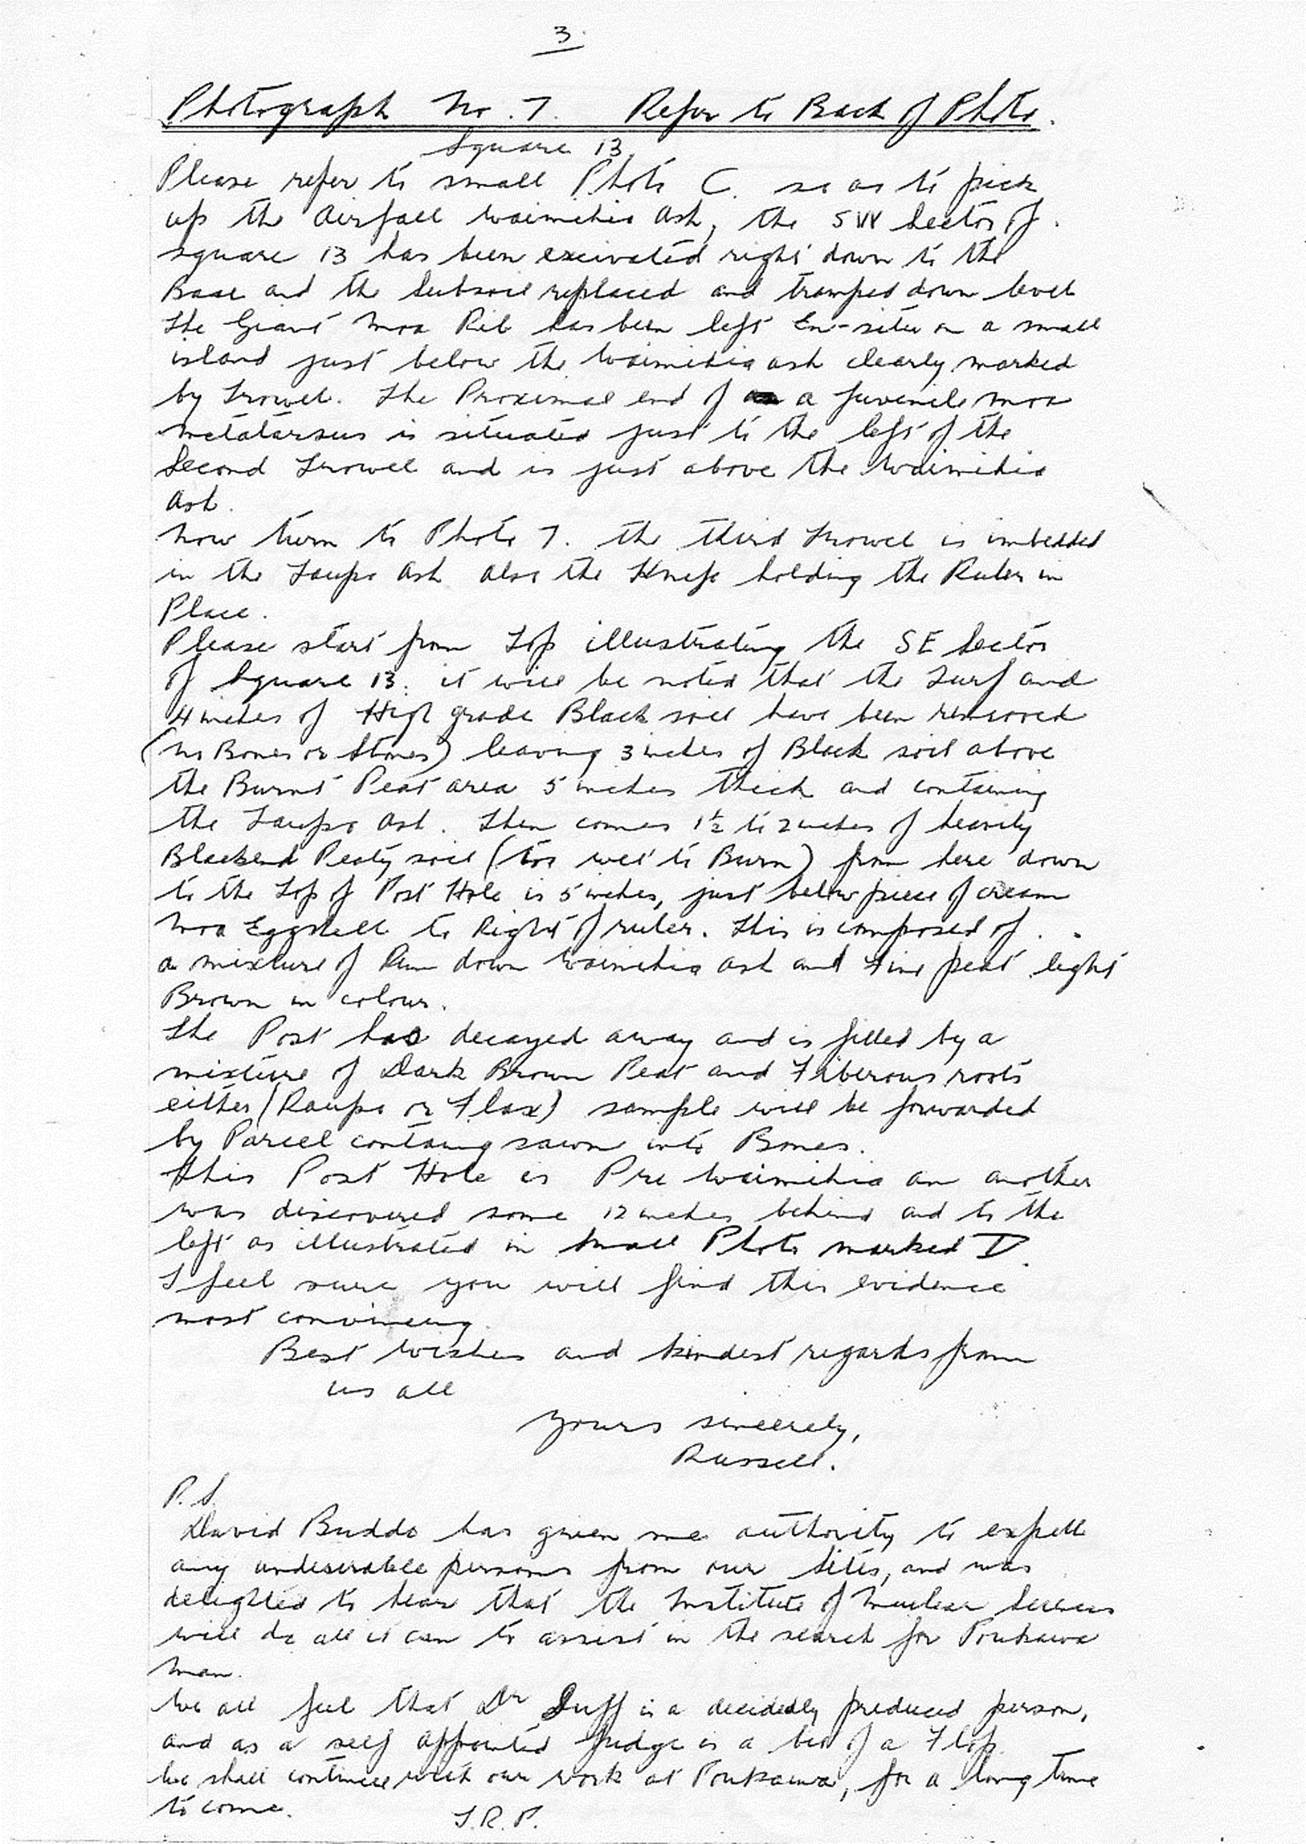 3.
Photograph No. 7. Refer to Back of Photo.
Square 13
Please refer to small Photo C. so as to pick
up the airfall Waimihia Ash, the SW Sector of
square 13 has been excivated right down to the
Base and the Subsoil replaced and tramped down level
The Giant Moa Rib has been left En-situ on a small
island just below the Waimihia ash clearly marked
by Trowel. The Proximal end of a juvenile moa
metatarsus is situated just to the left of the
Second Trowel and is just above the Waimihia
Ash.
Now turn to Photo 7. the third Trowel is imbedded
in the Taupo Ash also the Knife holding the Ruler in
Place.
Please start from Top illustrating the SE Sector
of Square 13. it will be noted that the Turf and
4 inches of High grade Black soil have been removed
(No Bones or Stones) leaving 3 inches of Black soil above
the Burnt Peat area 5 inches thick and containing
the Taupo Ash. Then comes 1½ to 2 inches of heavily
Blackend Peaty soil (too wet to Burn) from here down
to the Top of Post Hole is 5 inches, just below piece of cream
Moa Eggshell to Right of ruler. This is composed of
a mixture of Run down Waimihia Ash and Fine peat light
Brown in colour.
The Post has decayed away and is filled by a
mixture of Dark Brown Peat and Fiberous roots
either (Raupo or Flax) sample will be forwarded
by Parcel containg sawn into Bones.
This Post Hole is Pre Waimihia an another
was discovered some 12 inches behind and to the
left as illustrated in Small Photo marked D.
I feel sure you will find this evidence
most convincing.
Best wishes and kindest regards from
us all
Yours sincerely,
Russell.
P.S.
David Buddo has given me authority to expell
any undeserable persons from our Sites, and was
delighted to hear that the Institute of Nuclear Sciences
will do all it can to assist in the search for Poukawa
Man.
We all feel that Dr Duff is a decidedly preduced person,
and as a self appointed Judge is a bit of a Flop.
We shall continue with our work at Poukawa, for a long time
to come. T.R.P.